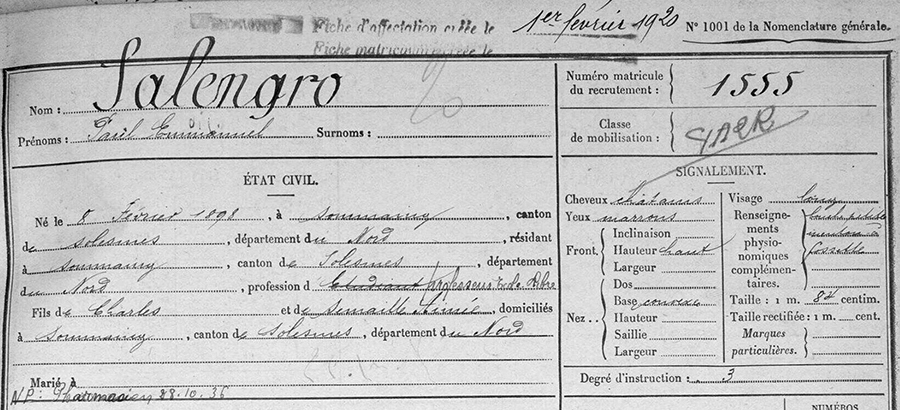 Fiche d'affectation créée le 1er février 1920 N° 1001 de la Nomenclature générale.
Fiche matricule créée le
Nom : Salengro
Prénoms : Paul Emmanuel Surnoms :
ÉTAT CIVIL.
Né le 8 Février 1898, à Sommaing, canton
de Solesmes, département du Nord, résidant
à Sommaing, canton de Solesmes, département
du Nord, profession d Etudiant professeur Ecole Libre
Fils de Charles et de Aimée, domiciliés
à Sommaing, canton de Solesmes, département du Nord
Marié à
N.P: Pharmacien 28.10.36
Numéro matricule
du recrutement : 1555
Classe
de mobilisation :
SIGNALEMENT.
Cheveux châtains
Yeux marrons
Front.
Inclinaison
Hauteur haut
Largeur
Nez..
Dos
Base convexe
Hauteur
Saillie
Largeur
Visage long
Renseigne-
ments
physio-
nomiques
complémen-
taires.
bouche petite
menton à
fossette
Taille : 1 m. centim.
Taille rectifiée : 1 m. cent.
Marques
particulières.
Degré d'instruction : 3
NUMÉROS